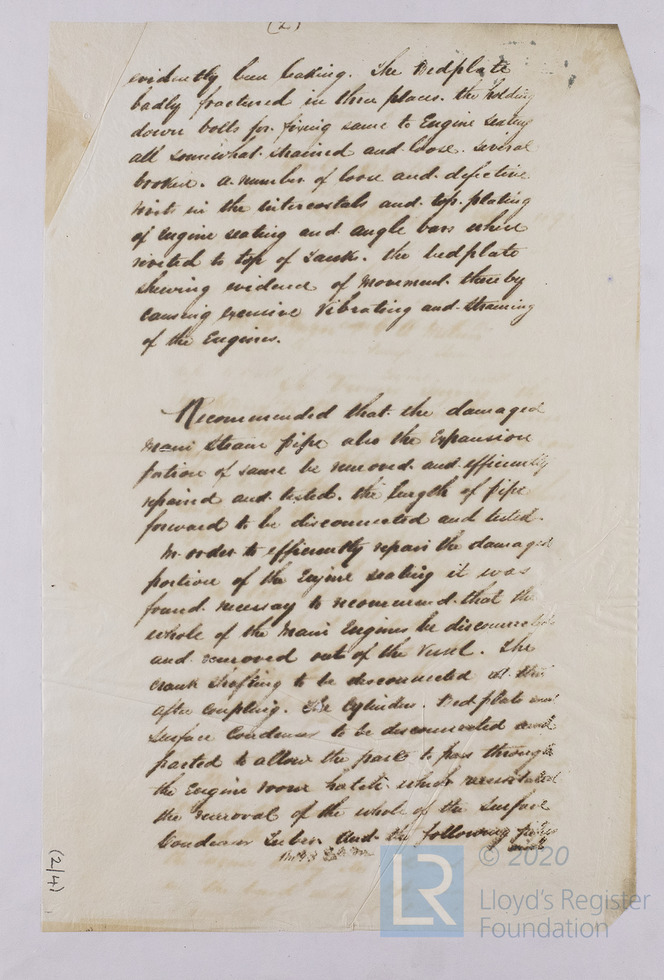 (2)
evidently been leaking. The Bedplate
badly fractured in three places. the holding
down bolts for fixing same to Engine seating
all somewhat strained and loose. several
broken. a number of loose and defective
rivets in the intercostals and top plating
of Engine seating and angle bars where
riveted to top of Tank. the bedplate
shewing evidence of movement thereby
causing excessive vibrating and straining
of the Engines.
Recommended that the damaged
main steam pipe also the Expansion
portion of same be removed and efficiently
repaired and tested. the length of pipe
forward to be disconnected and tested.
In order to efficiently repair the damaged
portion of the Engine seating it was
found necessary to recommend that the
whole of the Main Engines be disconnected
and removed out of the Vessel. The
crank shafting to be disconnected at the
after coupling. The Cylinders. Bedplate and
Surface Condenser to be disconnected and
parted to allow the parts to pass through
the Engine room hatch which necessitated
the removal of the whole of the Surface
Condenser Tubes. And the following
(2/4)
LR
© 2020
Lloyd's Register
Foundation